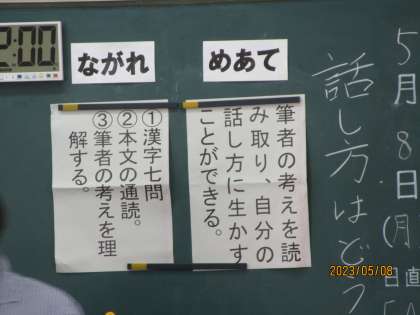 5月8日(月
日直
話し方はどう
めあて
筆者の考えを読
み取り、自分の
話し方に生かす
ことができる。
ながれ
①漢字七問
②本文の通読。
③筆者の考えを理
解する。
2:00
2023/05/08